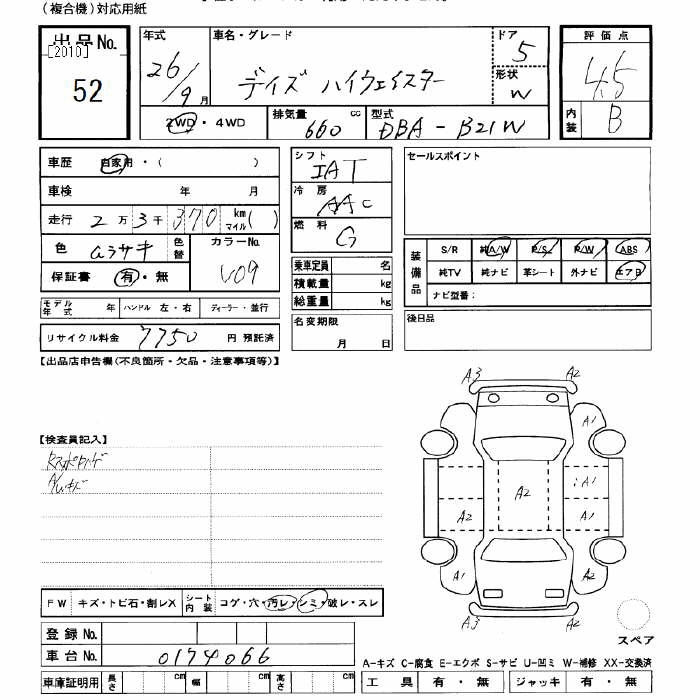 (複合機)対応用紙
出品No. [2010] 52
年式 26/9月
車名・グレード デイズ ハイウェイスター
ドア 5
形状 W
評価点 4.5
内装 B
2WD・4WD
排気量 660 cc
型式 DBA-B21W
車歴 自家用・( )
車検 年 月
走行 2万3千370km マイル( )
色 ムラサキ 色替
カラーNo. V09
保証書 有・無
モデル年式 年 ハンドル 左・右 ディーラー・並行
リサイクル料金 7750 円 預託済
シフト IAT
冷房 AAC
燃料 G
乗車定員 名
積載量 kg
総重量 kg
名変期限 月 日
セールスポイント
装備品 S/R 純A/W P/S P/W ABS
純TV 純ナビ 革シート 外ナビ エアB
ナビ型番:
後日品
【出品店申告欄(不良箇所・欠品・注意事項等)】
【検査員記入】
FW キズ・トビ石・割レX シート内装 コゲ・穴・汚レ・シミ・破レ・スレ
登録No.
車台No. 0174066
車庫証明用 長さ cm 幅 cm 高さ cm
A3 A2
A1
A1
A2 A2 A1
A1 A2
A3 A2
スペア
A-キズ C-腐食 E-エクボ S-サビ U-凹ミ W-補修 XX-交換済
工具 有・無 ジャッキ 有・無